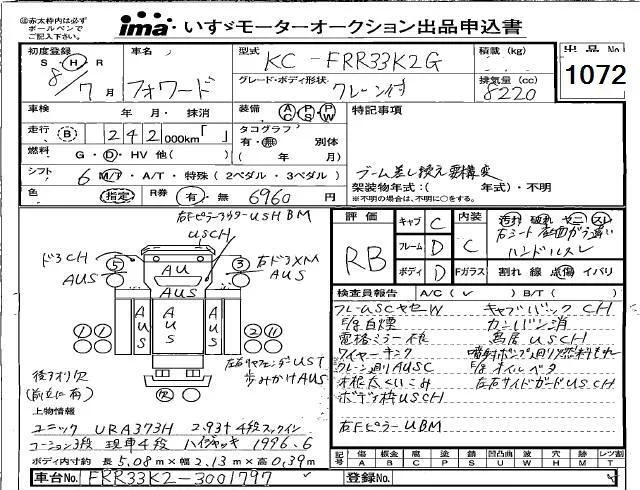 ※赤太枠内は必ず
ボールペンで
ご記入下さい。
ima いすゞモーターオークション出品申込書
初度登録
S H R
8/7月
車名
フォワード
型式
KC-FRR33K2G
グレード・ボディ形状
クレーン付
積載 (kg)
排気量 (cc)
8220
出品No
1072
車検 年 月・抹消
装備 AC PS PW
特記事項
走行 B 242 000km「 」
タコグラフ
有・無 別体
( 年 月)
燃料 G・D・HV 他( )
シフト 6 M/T・A/T・特殊(2ペダル・3ペダル)
ブーム差し換え要構変
架装物年式:( 年式)・不明
※不明の場合は、不明に○をする。
色 指定
R券 有・無 6960円
右Fピラーアウター USH BM
USCH
ドろCH
AUS
5
3
右ドろXM
AUS
AU
AUS
AUS
AUS
1 1
2 11
欠
後タオリ欠
左右リヤフェンダーUST
歩みかけAUS
評価
RB
キャブ C
フレーム D
ボディ D
内装 C
Fガラス
汚れ 破れ ヤニ スレ
ハンドルスレ
割れ 線 点傷 イバリ
検査員報告 A/C(✓) B/T( )
フレームSCヤセーW
キャブバックCH
E/g白煙
カンバン消
電格ミラー不良
鳥居USCH
クレーン廻りAUSC
E/gオイルベタ
木根太くいこみ
左右サイドガードUSCH
ボディ枠USCH
右FピラーUBM
上物情報
ユニック URA373H 2.93t 4段フックイン
コーション3段 現車4段 ハイジャッキ 1996.6
ボディ内寸約 長5.08m×幅2.13m×高0.39m
記号 傷A 板金B 腐C 塗P 錆S 凹U 凸凹曲W 穴H 欠M レツ割T
車台No. FRR33K2-3001797
登録No.